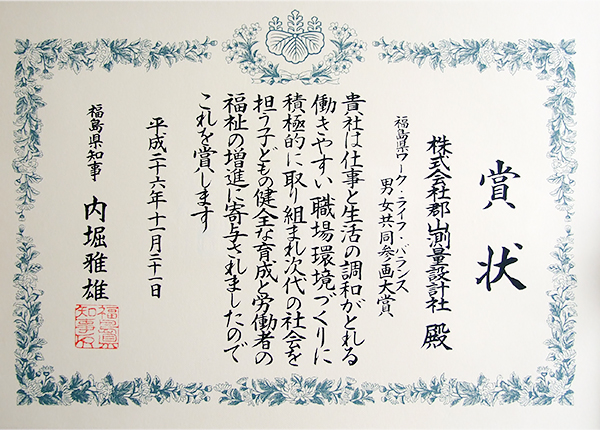 賞状
株式会社郡山測量設計社 殿
福島県ワーク・ライフ・バランス
男女共同参画大賞
貴社は仕事と生活の調和がとれる
働きやすい職場環境づくりに
積極的に取り組まれ次代の社会を
担う子どもの健全な育成と労働者の
福祉の増進に寄与されましたので
これを賞します
平成二十六年十一月二十一日
福島県知事 内堀雅雄
福島県
知事印